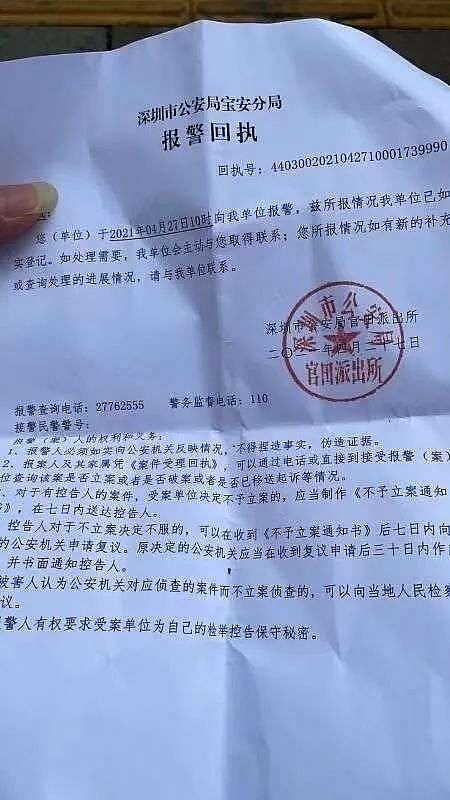 深圳市公安局宝安分局
报警回执
回执号：4403002021042710001739990
您（单位）于2021年04月27日10时向我单位报警，兹所报情况我单位已如
实登记。如处理需要，我单位会主动与您取得联系；您所报情况如有新的补充
或查询处理的进展情况，请与我单位联系。
深圳市公安局官田派出所
二〇二一年四月二十七日
深圳市公安局
官田派出所
报警查询电话：27762555 警务监督电话：110
接警民警警号：
报警（案）人的权利和义务：
1、报警人必须如实向公安机关反映情况，不得捏造事实，伪造证据。
2、报案人及其家属凭《案件受理回执》，可以通过电话或直接到接受报警（案）
位查询该案是否立案或者是否破案或者是否已移送起诉等情况。
、对于有控告人的案件，受案单位决定不予立案的，应当制作《不予立案通知
书》，在七日内送达控告人。
控告人对于不立案决定不服的，可以在收到《不予立案通知书》后七日内向
的公安机关申请复议。原决定的公安机关应当在收到复议申请后三十日内作
，并书面通知控告人。
被害人认为公安机关对应侦查的案件而不立案侦查的，可以向当地人民检察
议。
报警人有权要求受案单位为自己的检举控告保守秘密。